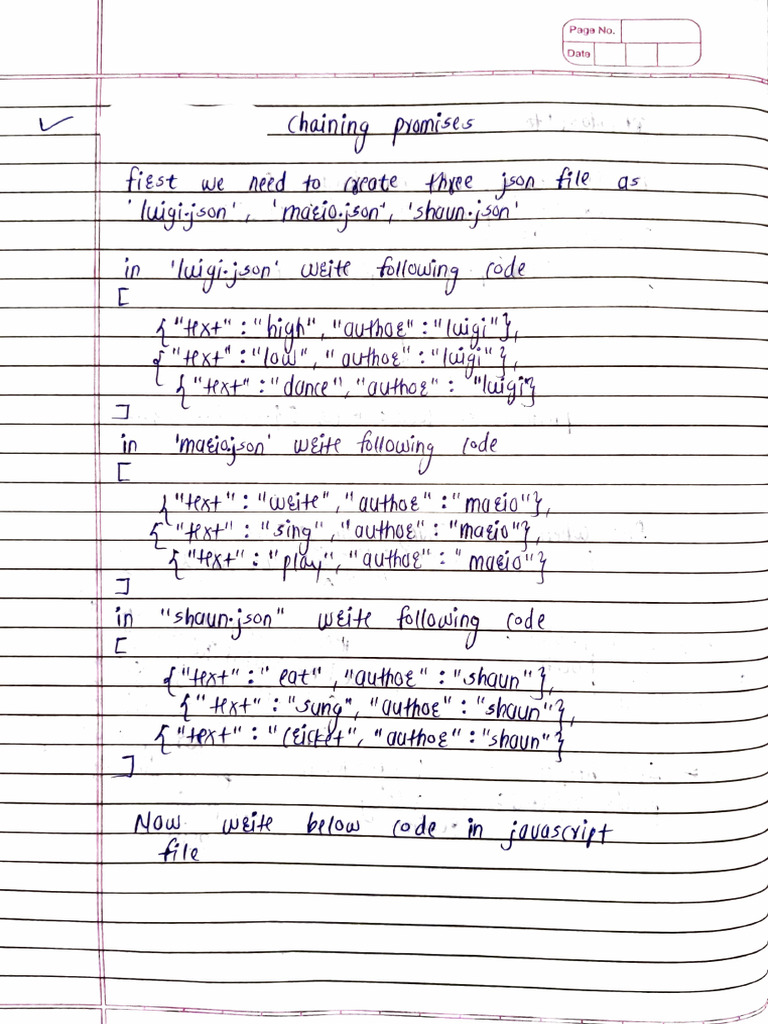 Page No.
Date
chaining promises
first we need to create three json file as
'luigi.json', 'mario.json', 'shaun.json'
in 'luigi.json' write following code
[
{"text" : "high", "author" : "luigi"},
{"text" : "low", "author" : "luigi"},
{"text" : "dance", "author" : "luigi"}
]
in 'mario.json' write following code
[
{"text" : "write", "author" : "mario"},
{"text" : "sing", "author" : "mario"},
{"text" : "play", "author" : "mario"}
]
in "shaun.json" write following code
[
{"text" : "eat", "author" : "shaun"},
{"text" : "sung", "author" : "shaun"},
{"text" : "cricket", "author" : "shaun"}
]
Now write below code in javascript
file